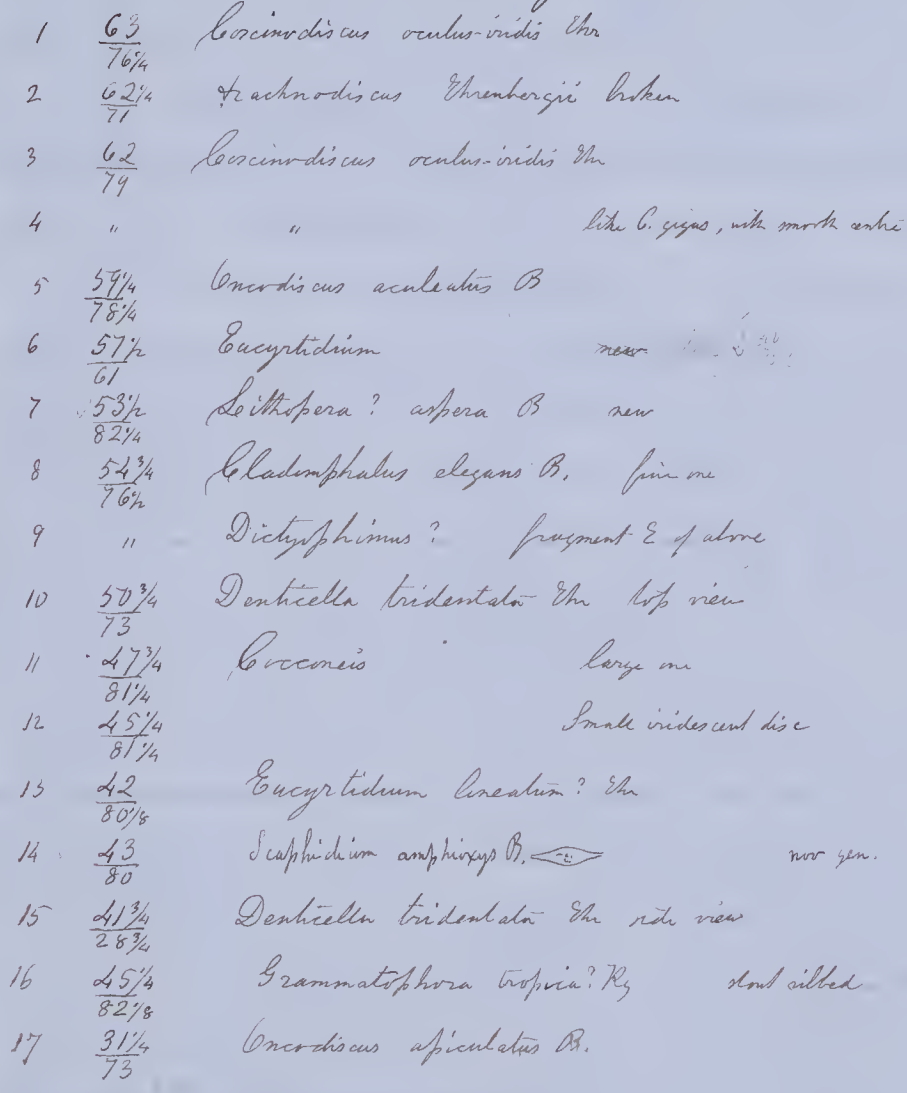 1 63/76 1/4 Coscinodiscus oculus-iridis Ehr
2 62 1/4/71 Arachnodiscus Ehrenbergii broken
3 62/79 Coscinodiscus oculus-iridis Ehr
4 " " like C. gigas, with smooth centre
5 59 1/4/78 1/4 Oncodiscus aculeatus B
6 57 1/2/61 Eucyrtidium new
7 53 1/2/82 1/4 Leithopera? aspera B new
8 54 3/4/76 1/2 Cladomphalus elegans B. fine one
9 " Dictyophimus? fragment E of above
10 50 3/4/73 Denticella tridentata Ehr top view
11 47 3/4/81 1/4 Cocconeis large one
12 45 1/4/81 1/4 Small iridescent disc
13 42/80 1/8 Eucyrtidium lineatum? Ehr
14 43/80 Scaphidium amphioxys B. nov gen.
15 41 3/4/28 3/4 Denticella tridentata Ehr side view
16 45 1/4/82 1/8 Grammatophora tropica? Kg stout
17 31 1/4/73 Oncodiscus apiculatus B.